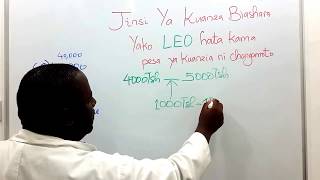 Jinsi Ya Kuanza Biashara
Yako LEO hata kama
pesa ya kuanzia ni changamoto
40,000
4000Tsh
5000Tsh
1000Tsh